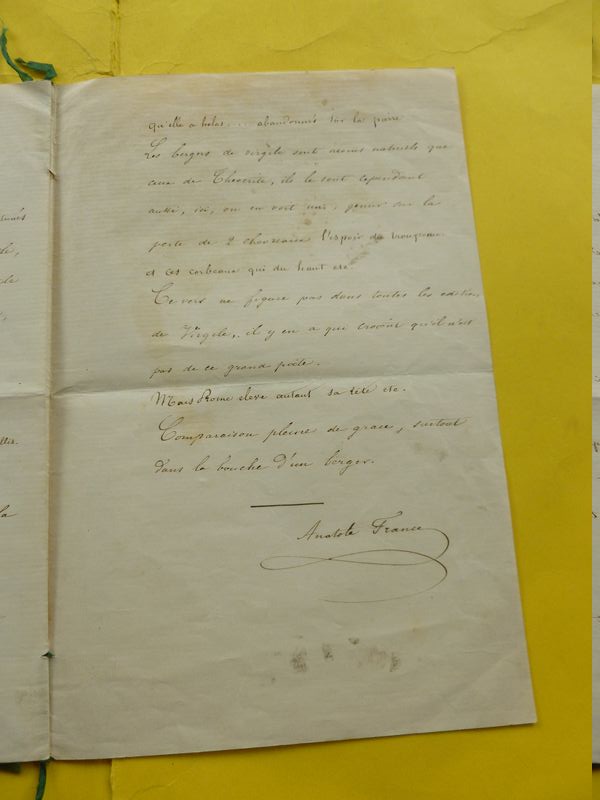 qu'elle a helas.... abandonnés sur la pierre
Les bergers de virgile sont moins naturels que
ceux de Theocrite, ils le sont cependant
aussi, ici, on en voit un, gemir sur la
perte de 2 chevreaux l'espoir du troupeau
et ces corbeaux qui du haut etc.
Ce vers ne figure pas dans toutes les editions
de Virgile, il y en a que croient qu'il n'est
pas de ce grand poëte.
Mais Rome eleve autant sa tete etc.
Comparaison pleine de grace, surtout
dans la bouche d'un berger.
Anatole France
la